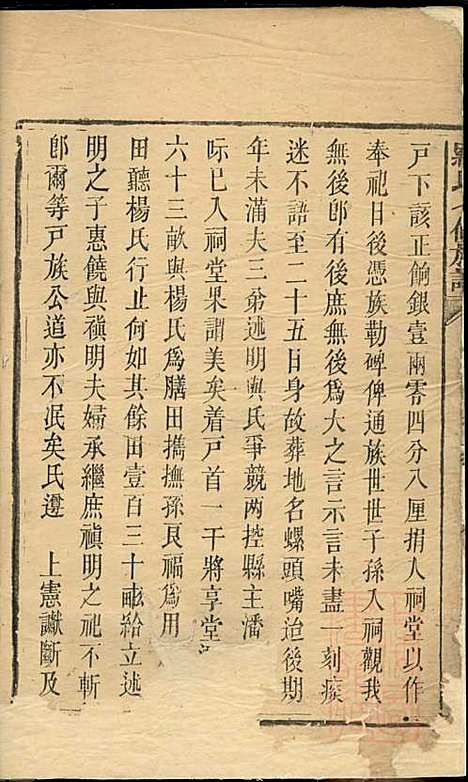 戶下該正餉銀壹兩零四分八厘捐入祠堂以作
奉祀日後憑族勒碑俾通族世世子孫入祠觀我
無後卽有後庶無後爲大之言示言未盡一刻痰
迷不語至二十五日身故葬地名螺頭嘴治後期
年未滿夫三弟述明與氏爭競两控縣主潘
际已入祠堂果謂美矣着戶首一干將享堂
六十三畝與楊氏爲膳田擕撫孫艮福爲用
田聽楊氏行止何如其餘田壹百三十畝給立述
明之子惠饒與禎明夫婦承繼庶禎明之祀不斬
卽爾等戶族公道亦不泯矣氏遵　上憲讞斷及